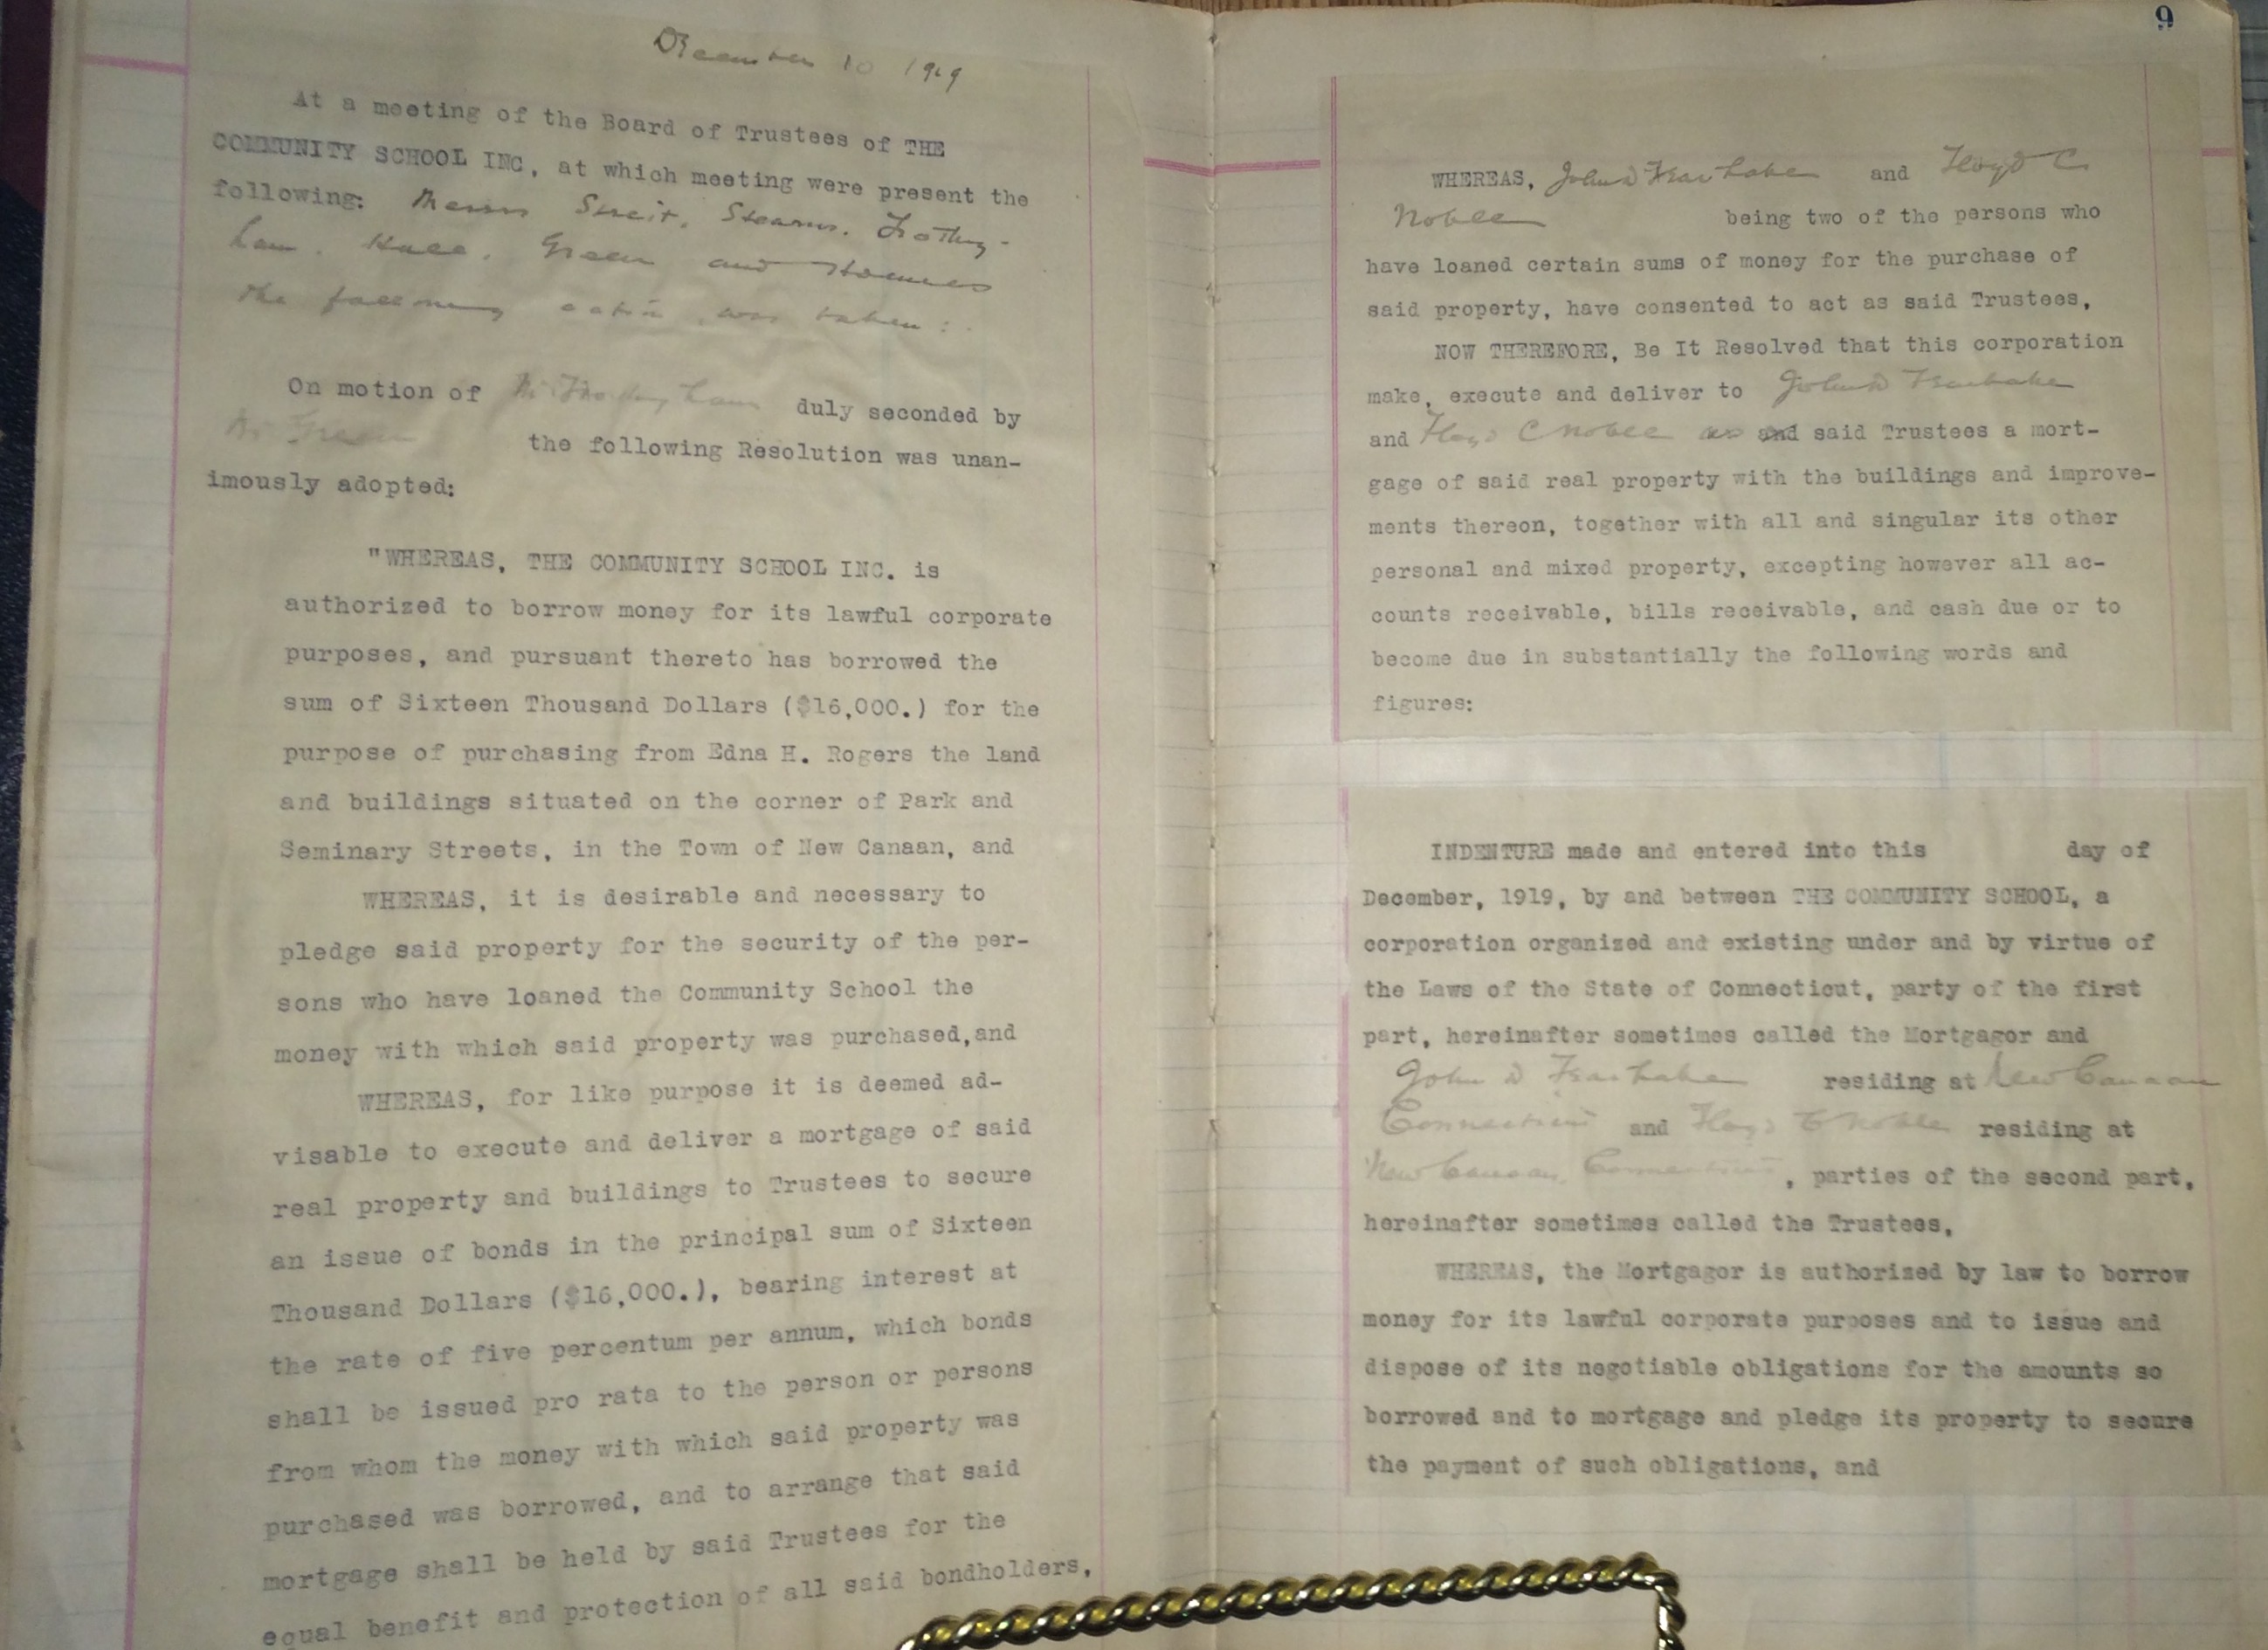 December 10 1919
At a meeting of the Board of Trustees of THE
COMMUNITY SCHOOL INC, at which meeting were present the
following: Messrs Streit, Stearns, Frothing-
ham, Hall, Green and
the following action was taken:
On motion of Mr Frothingham duly seconded by
Mr Green the following Resolution was unan-
imously adopted:
"WHEREAS, THE COMMUNITY SCHOOL INC. is
authorized to borrow money for its lawful corporate
purposes, and pursuant thereto has borrowed the
sum of Sixteen Thousand Dollars ($16,000.) for the
purpose of purchasing from Edna H. Rogers the land
and buildings situated on the corner of Park and
Seminary Streets, in the Town of New Canaan, and
WHEREAS, it is desirable and necessary to
pledge said property for the security of the per-
sons who have loaned the Community School the
money with which said property was purchased,and
WHEREAS, for like purpose it is deemed ad-
visable to execute and deliver a mortgage of said
real property and buildings to Trustees to secure
an issue of bonds in the principal sum of Sixteen
Thousand Dollars ($16,000.), bearing interest at
the rate of five percentum per annum, which bonds
shall be issued pro rata to the person or persons
from whom the money with which said property was
purchased was borrowed, and to arrange that said
mortgage shall be held by said Trustees for the
equal benefit and protection of all said bondholders,
9
WHEREAS, John D and Floyd C
Noble being two of the persons who
have loaned certain sums of money for the purchase of
said property, have consented to act as said Trustees,
NOW THEREFORE, Be It Resolved that this corporation
make, execute and deliver to John D
and Floyd C Noble as and said Trustees a mort-
gage of said real property with the buildings and improve-
ments thereon, together with all and singular its other
personal and mixed property, excepting however all ac-
counts receivable, bills receivable, and cash due or to
become due in substantially the following words and
figures:
INDENTURE made and entered into this day of
December, 1919, by and between THE COMMUNITY SCHOOL, a
corporation organized and existing under and by virtue of
the Laws of the State of Connecticut, party of the first
part, hereinafter sometimes called the Mortgagor and
John D residing at New Canaan
Connecticut and Floyd C Noble residing at
New Canaan, Connecticut, parties of the second part,
hereinafter sometimes called the Trustees,
WHEREAS, the Mortgagor is authorized by law to borrow
money for its lawful corporate purposes and to issue and
dispose of its negotiable obligations for the amounts so
borrowed and to mortgage and pledge its property to secure
the payment of such obligations, and